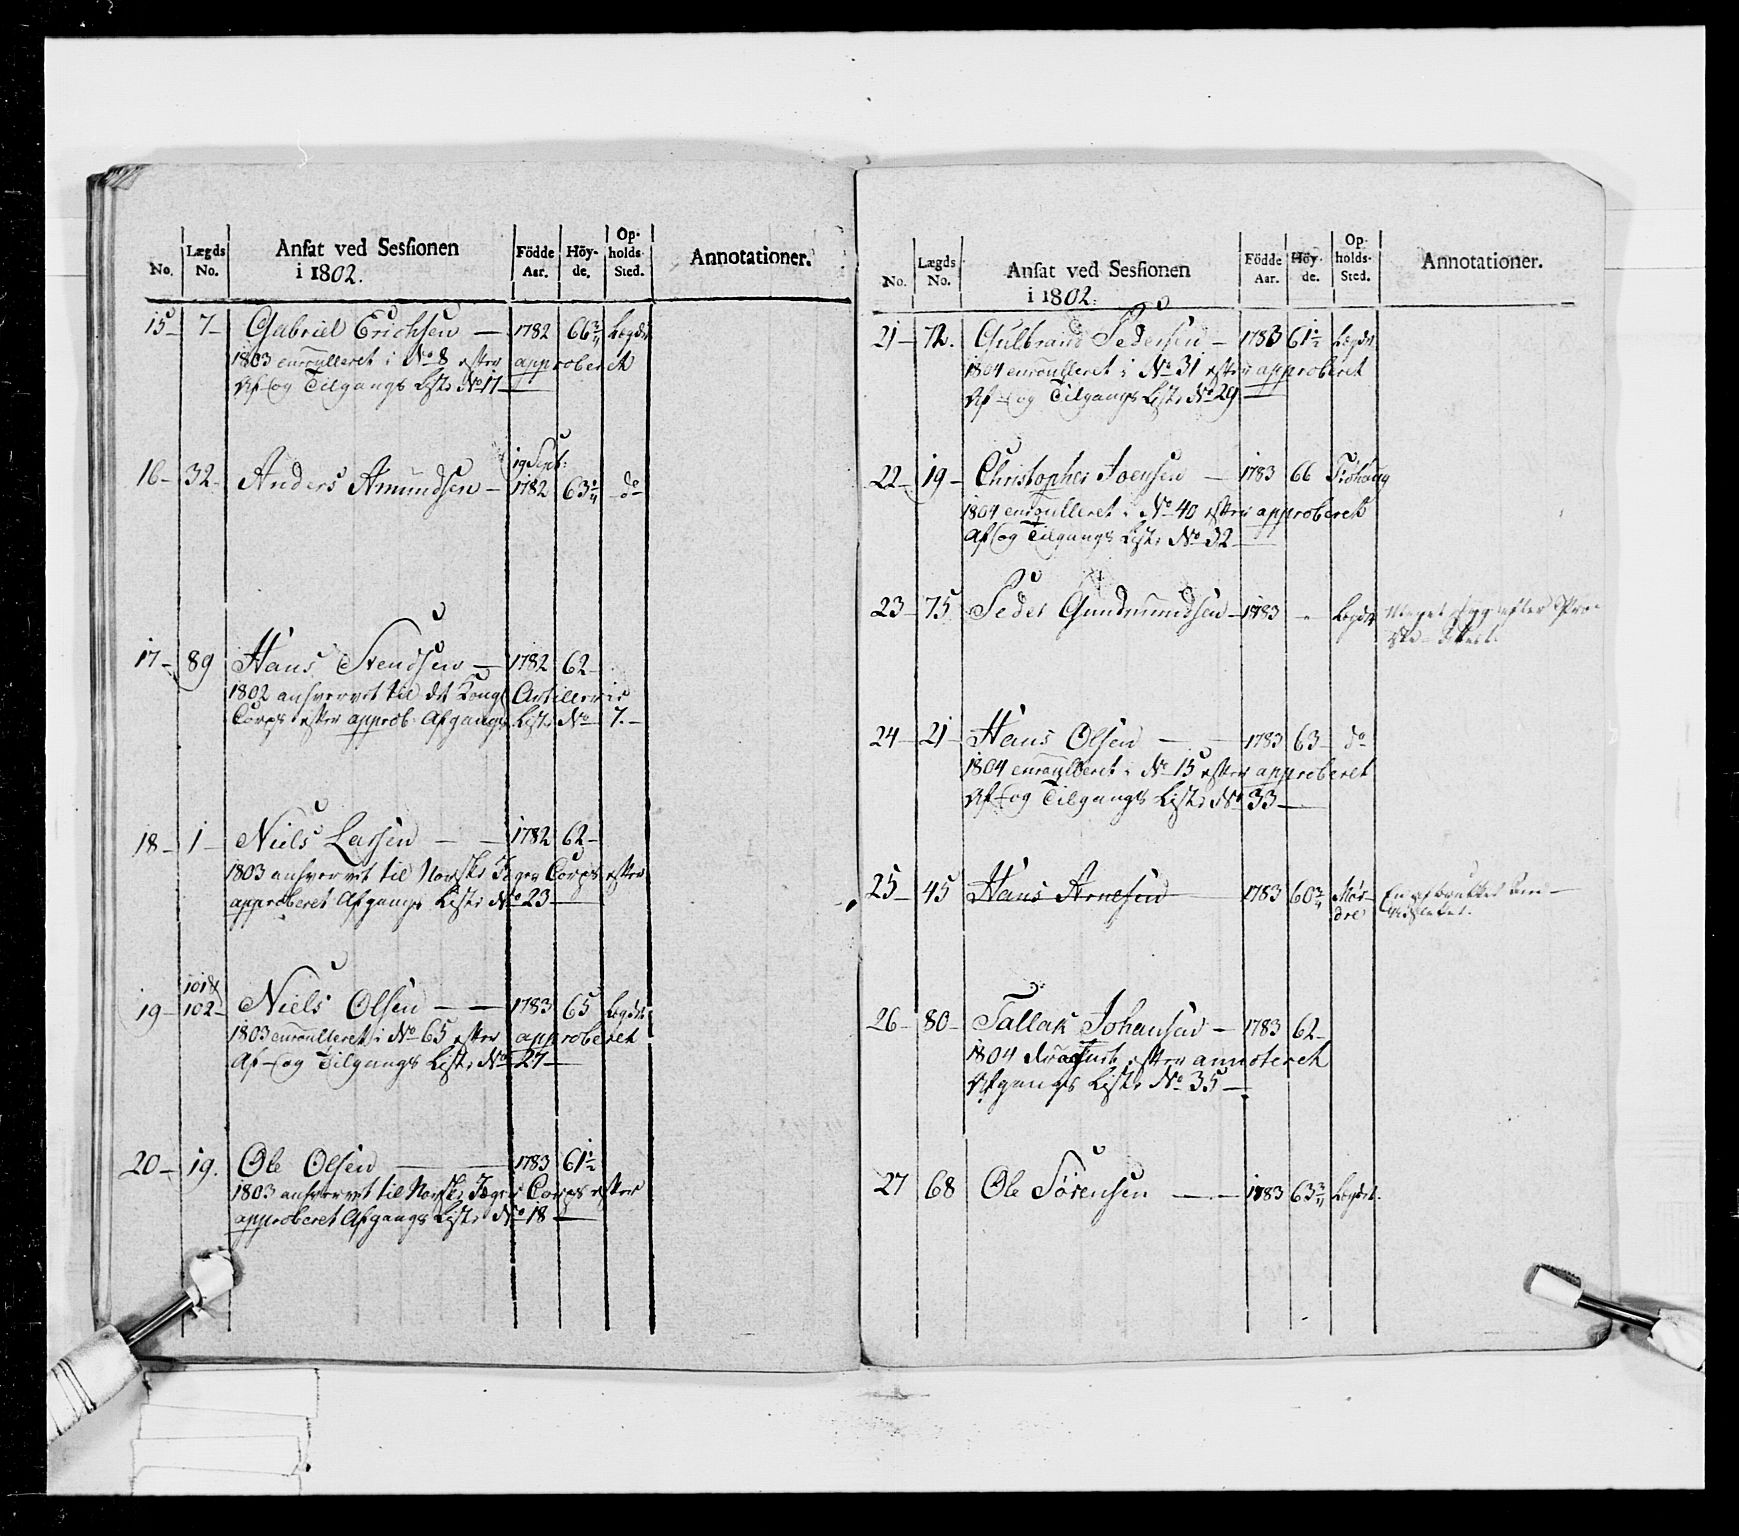 No. Lægds No. Ansat ved Sessionen i 1802. Födde Aar. Höy-de. Op-holds-Sted. Annotationer.
15 – 7 – Gabriel Erichsen — 1782 66 3/4 Lægdet
1803 enroulleret i No 8 efter approberet
Af- og Tilgangs Liste No 17 —
19 Sept:
16 – 32 – Anders Amundsen – 1782 63 do
17 – 89 Hans Svendsen — 1782 62 –
1802 anhvervet til det Kongl Artillerie
Corps efter approb: Afgangs Liste No 7. –
18 – 1 – Niels Larsen — — 1782 62 –
1803 anhvervet til Norske Jæger Corps efter
approberet Afgangs Liste No 23 —
101 &
19 – 102 – Niels Olsen — — 1783 65 Lægdet
1803 enroulleret i No 65 efter approberet
Af- og Tilgangs Liste No 27 —
20 – 19. Ole Olsen — — 1783 61 1/2
1803 anhvervet til Norske Jæger Corps efter
approberet Afgangs Liste No 18 —
No. Lægds No. Ansat ved Sessionen i 1802. Födde Aar. Höy-de. Op-holds-Sted. Annotationer.
21 – 72. Gulbrand Pedersen – 1783 61 1/2 Lægdet
1804 enroulleret i No 31 efter approberet
Af- og Tilgangs Liste No 29 —
22 – 19 – Christopher Joensen — 1783 66
1804 enroulleret i No 40 efter approberet
Af- og Tilgangs Liste No 32
23 – 75 Peder Gundmundsen – 1783 – Lægdet Meget syg efter Præ-
24 – 21 – Hans Olsen — — 1783 63 – do
1804 enroulleret i No 15 efter approberet
Af- og Tilgangs Liste No 33 —
25 – 45 Hans Arnesen 1783 60 3/4 Mör-
dre
26 – 80 – Tallak Johansen – 1783 62 –
1804 efter
Afgangs Liste No 35 —
27 68 Ole Sörensen — — 1783 63 3/4 Lægdet.